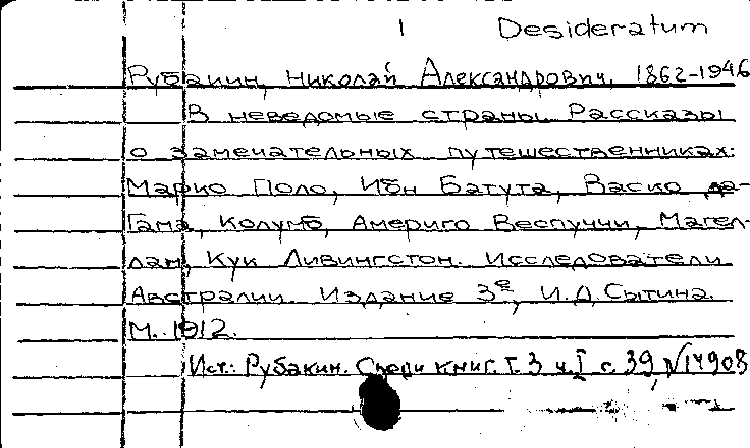 1 Desideratum
Рубакин, Николай Александрович, 1862-1946
В неведомые страны. Рассказы
о замечательных путешественниках:
Марко Поло, Ибн Батута, Васко да-
Гама, Колумб, Америго Веспуччи, Магел-
лан, Кук Ливингстон. Исследователи
Австралии. Издание 3е, И.Д.Сытина.
М. 1912.
Ист.: Рубакин. Среди книг. Т. 3 ч. I с. 39, №14908